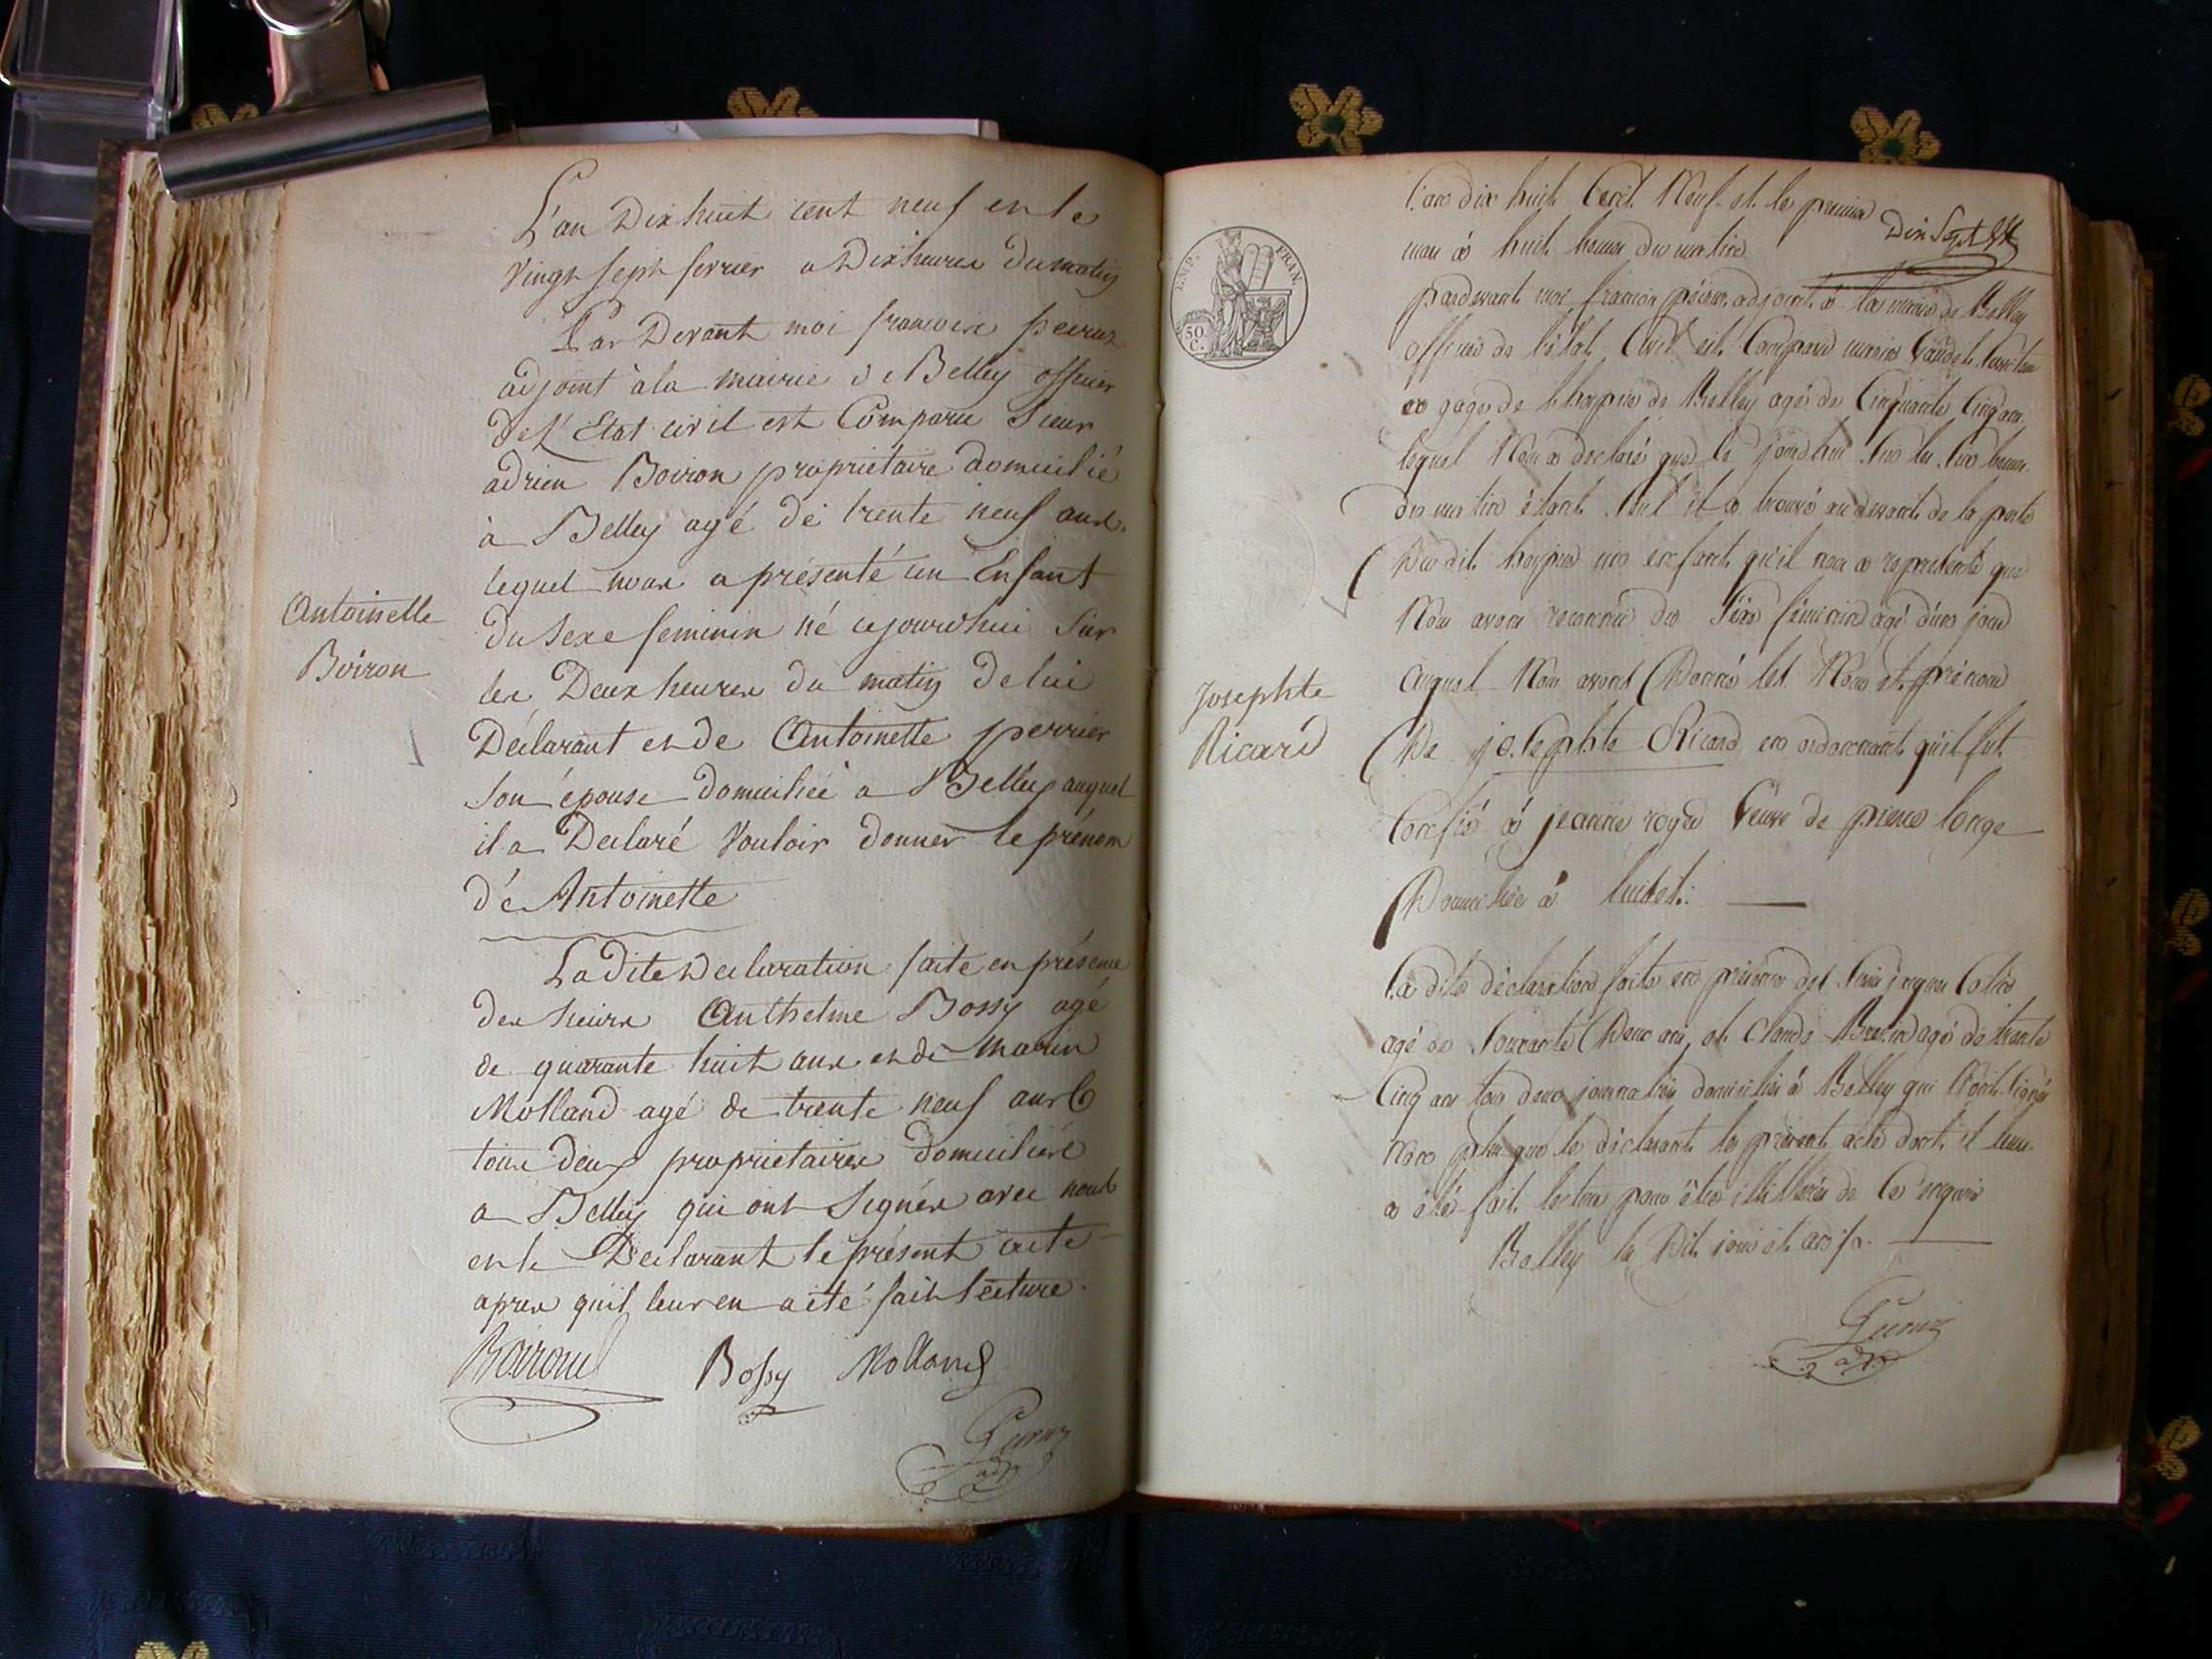 L'an Dix huit cent neuf et le
Vingt sept fevrier a Dix heures du matin
Par Devant moi francois peiruz
adjoint à la mairie de Belley officier
De L'Etat civil est Comparu Sieur
adrien Boiron propriétaire domicilié
à Belley agé de trente neuf ans.
lequel nous a présenté un Enfant
Du Sexe feminin né cejourdhui Sur
les Deux heures du matin De lui
Déclarant et de Antoinette perrier
Son épouse domiciliée a Belley auquel
il a Declaré Vouloir donner le prénom
d'é Antoinette
Antoinette
Boiron
La dite Declaration faite en présence
des sieurs Anthelme Bossy agé
de quarante huit ans et de Marin
Molland agé de trente neuf ans
tous deux proprietaires domiciliés
a Belley qui ont Signés avec nous
et le Declarant le présent acte
apres quil leur en a été fait lecture.
Boiron Bossy Molland
adj
EMP. FRAN.
50 C.
Dix Sept
L'an dix huit Cent Neuf et le premier
mars à huit heures du matin
pardevant moi francois adjoint à la mairie de Belley
officier de l'état Civil est Comparu
a gages de l'hospice de Belley agé de Cinquante Cinq ans
lequel Nous a declaré que le jourdhui Sur les Six heures
du matin étant Seul il a trouvé au devant de la porte
Du dit hospice un enfant qu'il nous a représenté que
Nous avons reconnu du Sexe féminin agé d'un jour
auquel Nous avons Donné les Nom et prénom
De josephte Ricard en ordonnant qu'il fut
Josephte
Ricard
Confié à jeanne veuve de pierre longe
Domiciliée à
La dite déclaration faite en présence des Sieurs jaques
agé de Soixante Deux ans et Claude agé de trente
Cinq ans tous deux journaliers domiciliés à Belley qui N'ont Signés
Non plus que le déclarant le présent acte dont il leur
a été fait lecture pour être illitérés de Ce enquis
Belley les Dit jour et an
adj